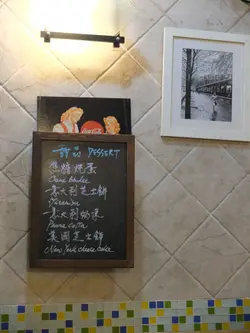 Coca-Cola
甜品 DESSERT
焦糖燉蛋
Creme Brulee
意大利芝士餅
Tiramisu
意大利奶凍
Panna Cotta
美國芝士餅
New York Cheese Cake